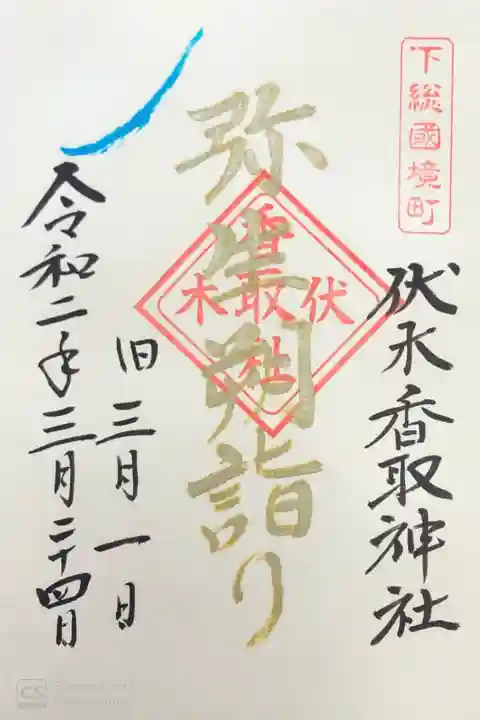 下総國境町
伏木香取神社
弥生朔詣り
香取社
伏木
旧三月一日
令和二年三月二十四日
CS